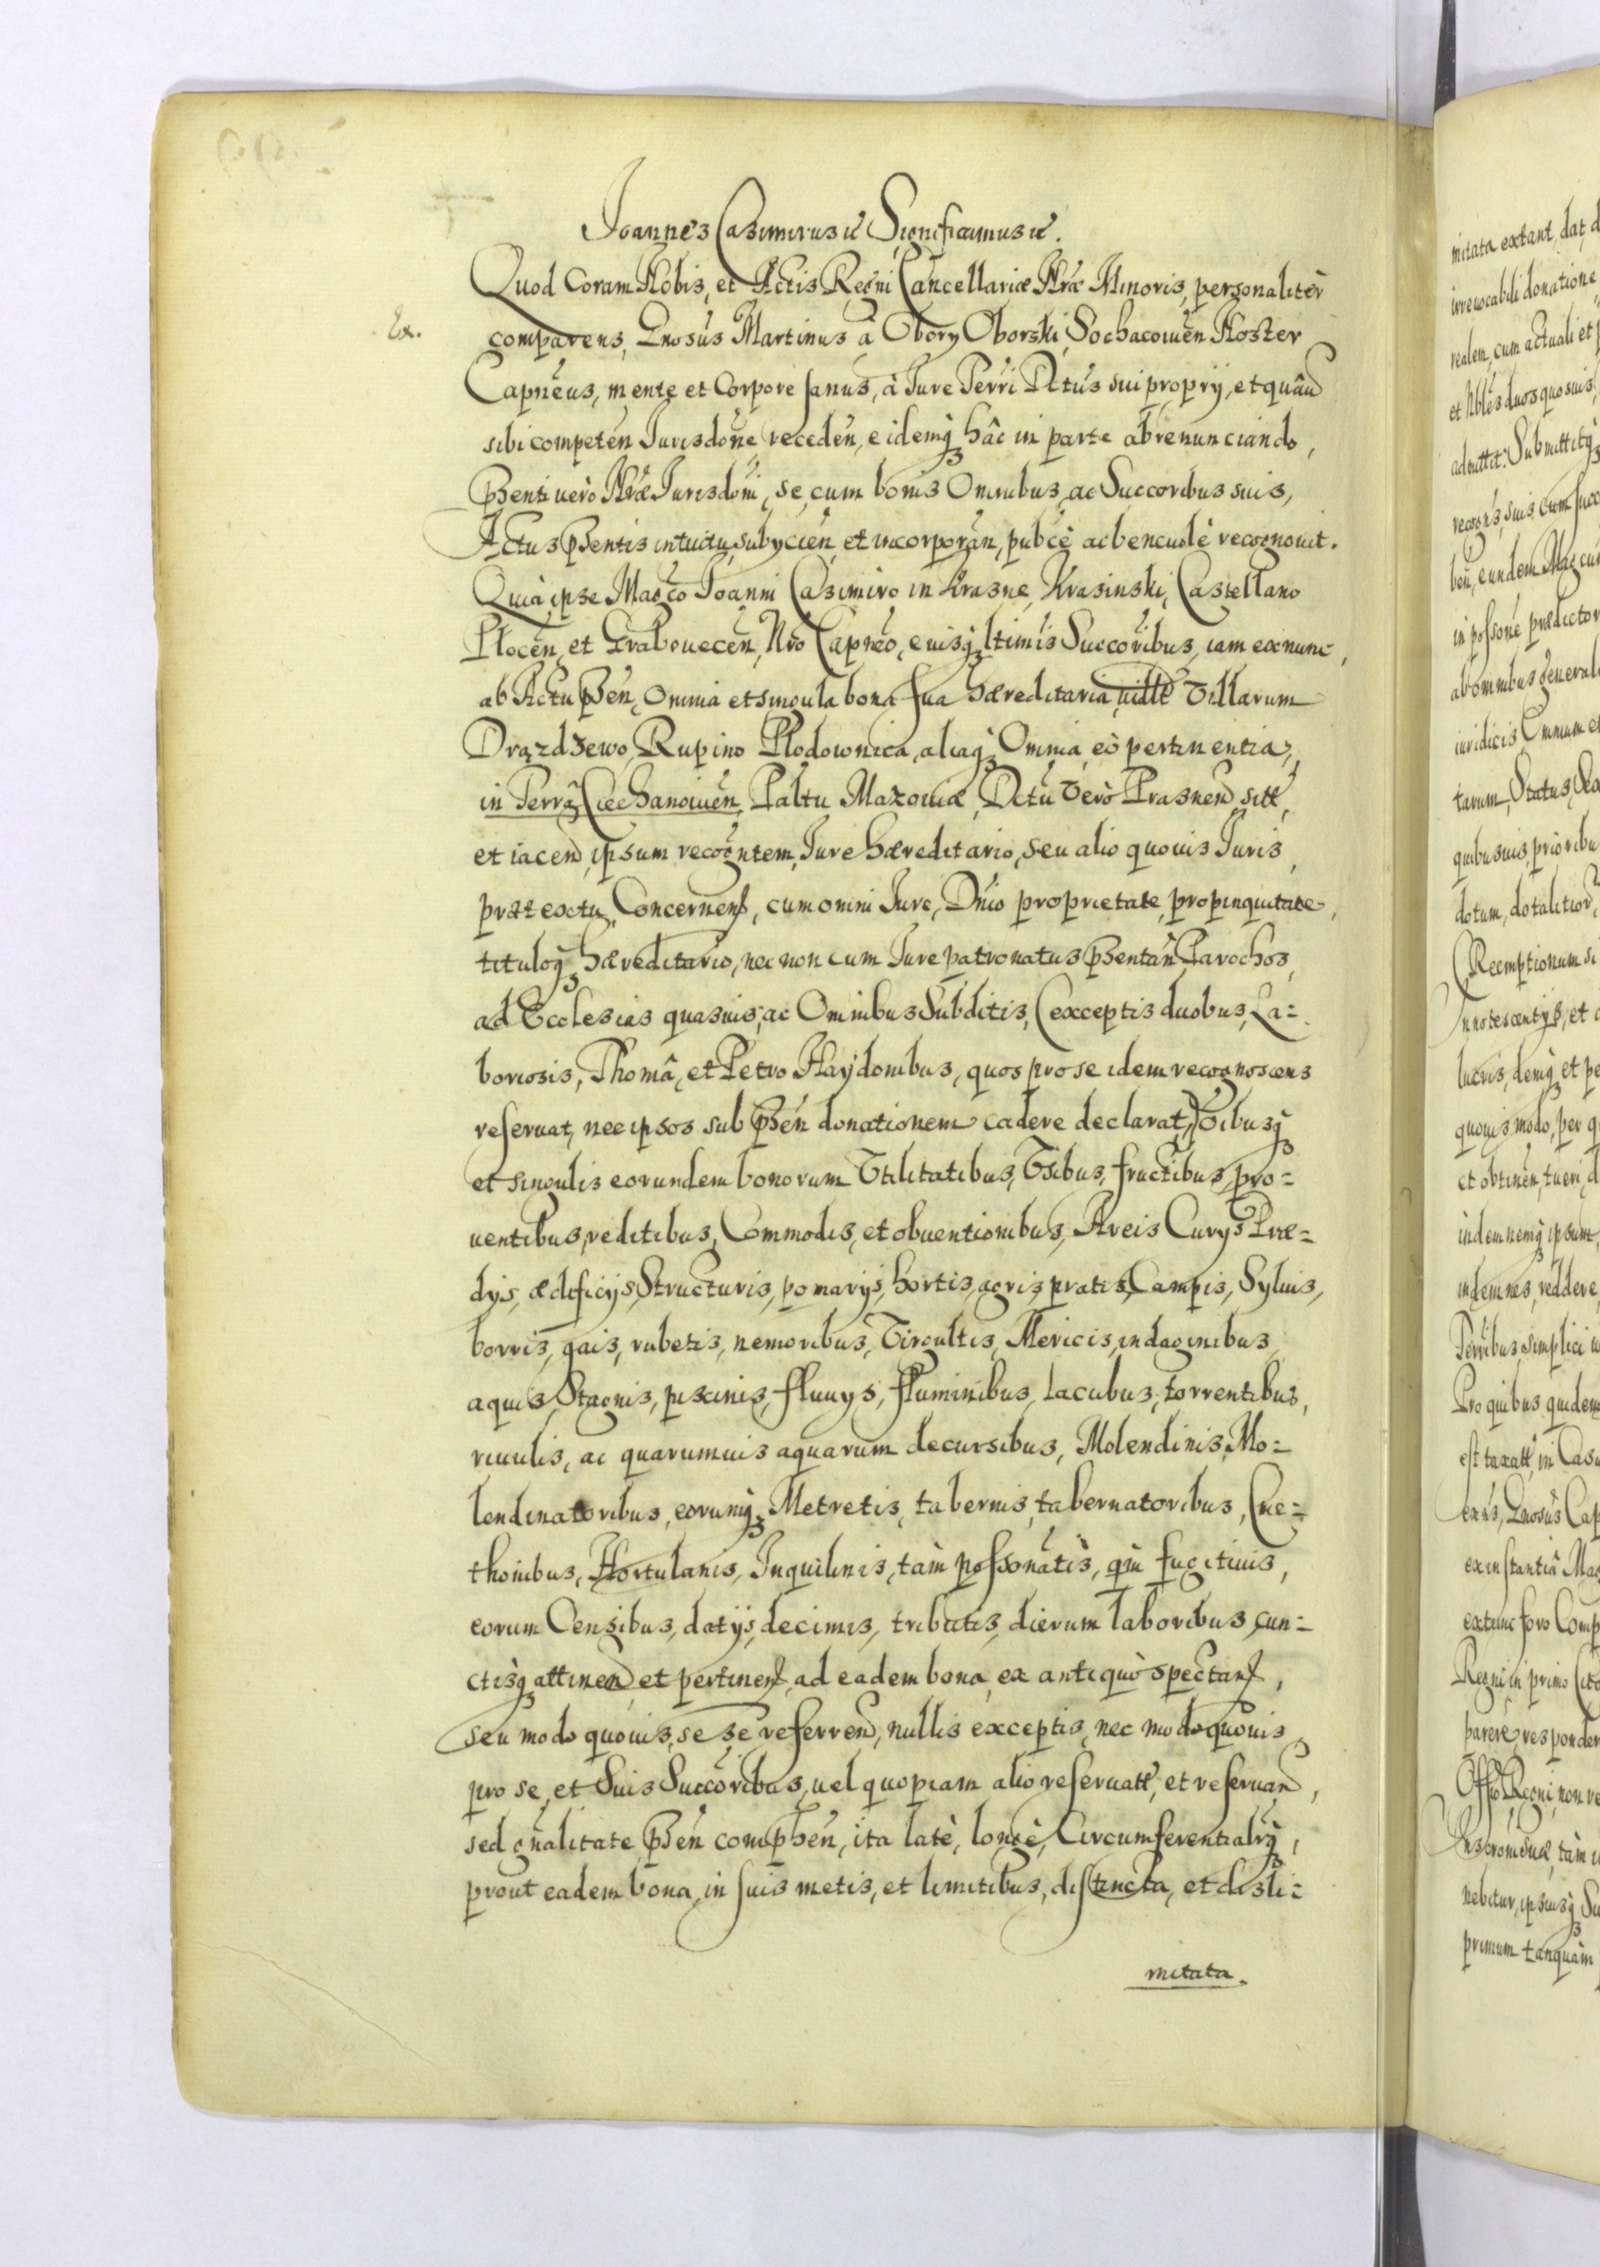 Joannes Casimirus etc Significamus etc.
Quod Coram Nobis, et Actis Regni Cancellariæ Nræ Minoris, personalitèr
Ex. comparens, Gnosus Martinus à Obory Oborski, Sochacouien Noster
Capneus, mente et Corpore sanus, à Jure Terri Dctus sui proprÿ, et quâuis
sibi competen Jurisdone receden, eidemq hâc in parte abrenunciando,
Psenti uerò Nræ Jurisdoni, se cum bonis Omnibus, ac Succoribus suis,
Actus Psentis intuitu, subÿcien et incorporan, pubcè ac beneuolè recognouit.
Quià ipse Magco Joanni Casimiro in Krasne, Krasinski, Castellano
Plocen, et Grabouecen, Nro Capneo, eiusq ltimis Succoribus, iam ex nunc,
ab Actu Psen, Omnia et singula bona sua hæreditaria, uidlt Villarum
Drązdzewo, Rupino Płodownica, aliaq Omnia, eò pertinentia,
in Terrâ Ciechanouien, Paltu Mazouiæ, Dctu Verò Prasnen sitt,
et iacen, ipsum recogntem, Jure hæreditario, seu alio quouis Juris
prætextu, Concernens, cum omni Jure, Dnio proprietate, propinquitate,
tituloq hæreditario, nec non cum Jure patronatus Psentan Parochos,
ad Ecclesias quasuis, ac Omnibus Subditis, (exceptis duobus, La=
boriosis, Thomâ, et Petro Haydonibus, quos pro se idem recognoscens
reseruat, nec ipsos sub Psen donationem cadere declarat,) Oibusq
et singulis eorundem bonorum Vtilitatibus, Vsibus, fructibus, pro=
uentibus, reditibus, Commodis, et obuentionibus, Areis Curÿs Præ=
dÿs, ædificÿs, Structuris, pomarÿs, hortis, agris, pratis, Campis, Syluis,
borris, gais, rubetis, nemoribus, Virgultis, Mericis, indaginibus
aquis, Stagnis, piscinis, fluuÿs, fluminibus, lacubus, torrentibus,
riuulis, ac quarumuis aquarum decursibus, Molendinis, Mo=
lendinatoribus, eorumq Metretis, tabernis, tabernatoribus, Cme=
thonibus, Hortulanis, Inquilinis, tàm possonatis, qm fugitiuis,
eorum Censibus, datÿs, decimis, tributis, dierum laboribus, cun=
ctisq attinen et pertinens, ad eadem bona, ex antiquò spectans,
seu modo quouis, se se referren, nullis exceptis, nec modo quouis
pro se, et Suis Succoribus, uel quopiam alio reseruatt, et reseruan,
sed gnalitate Psen comphen, ita latè, longè, Circumferentialrq,
prout eadem bona, in suis metis, et limitibus, distincta, et disli=
mitata.
mitata extant, dat, d
irreuocabili donatione
realem, cum actuali et
et Nbles duos quosuis,
admittit: Submittitq
in possone prædictor
ab omnibus general
iuridicis Omnium et
tarum, Status, Sex
quibusuis, prioribu
dotum, dotalitior
Reemptionum
lucris, deniq et pe
quouis modo, per q
et obtinen, tueri, d
indemnemq ipsum,
indemnes, reddere,
Terribus, simplici
Pro quibus quidem
est taxatt, in Casu
ens, Gnosus Cap
ex instantia Mag
extunc foro Comp
Regni, in primo Cito
parere, responder
Offo, Regni, non re
nebitur, ipsiusq Su
primum tanquàm